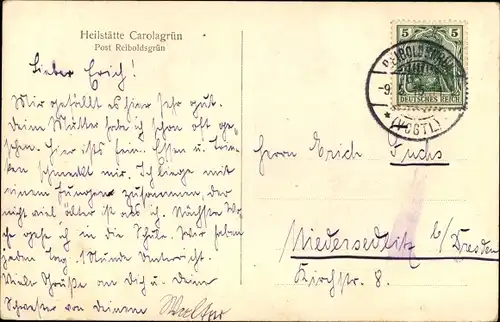 Heilstätte Carolagrün
Post Reiboldsgrün
Lieber Erich!
Mir gefällt es hier sehr gut.
Deine Mutter habe ich schon oft ge-
sehen. Hier ists fein. Essen u. Trin-
ken schmeckt mir. Ich liege mit
einem Jungen zusammen der
nicht viel älter ist als ich. Nächste Wo-
che gehe ich in die Schule. Wir haben
jeden Tag 1 Stunde Unterricht.
Viele Grüße an dich u. deine
Schwester von deinem Walter
5 5
DEUTSCHES REICH
REIBOLDSGRÜN
-9.
* (VOGTL)
Herrn Erich Fuchs
Niedersedlitz b/Dresden
Kirchstr. 8.